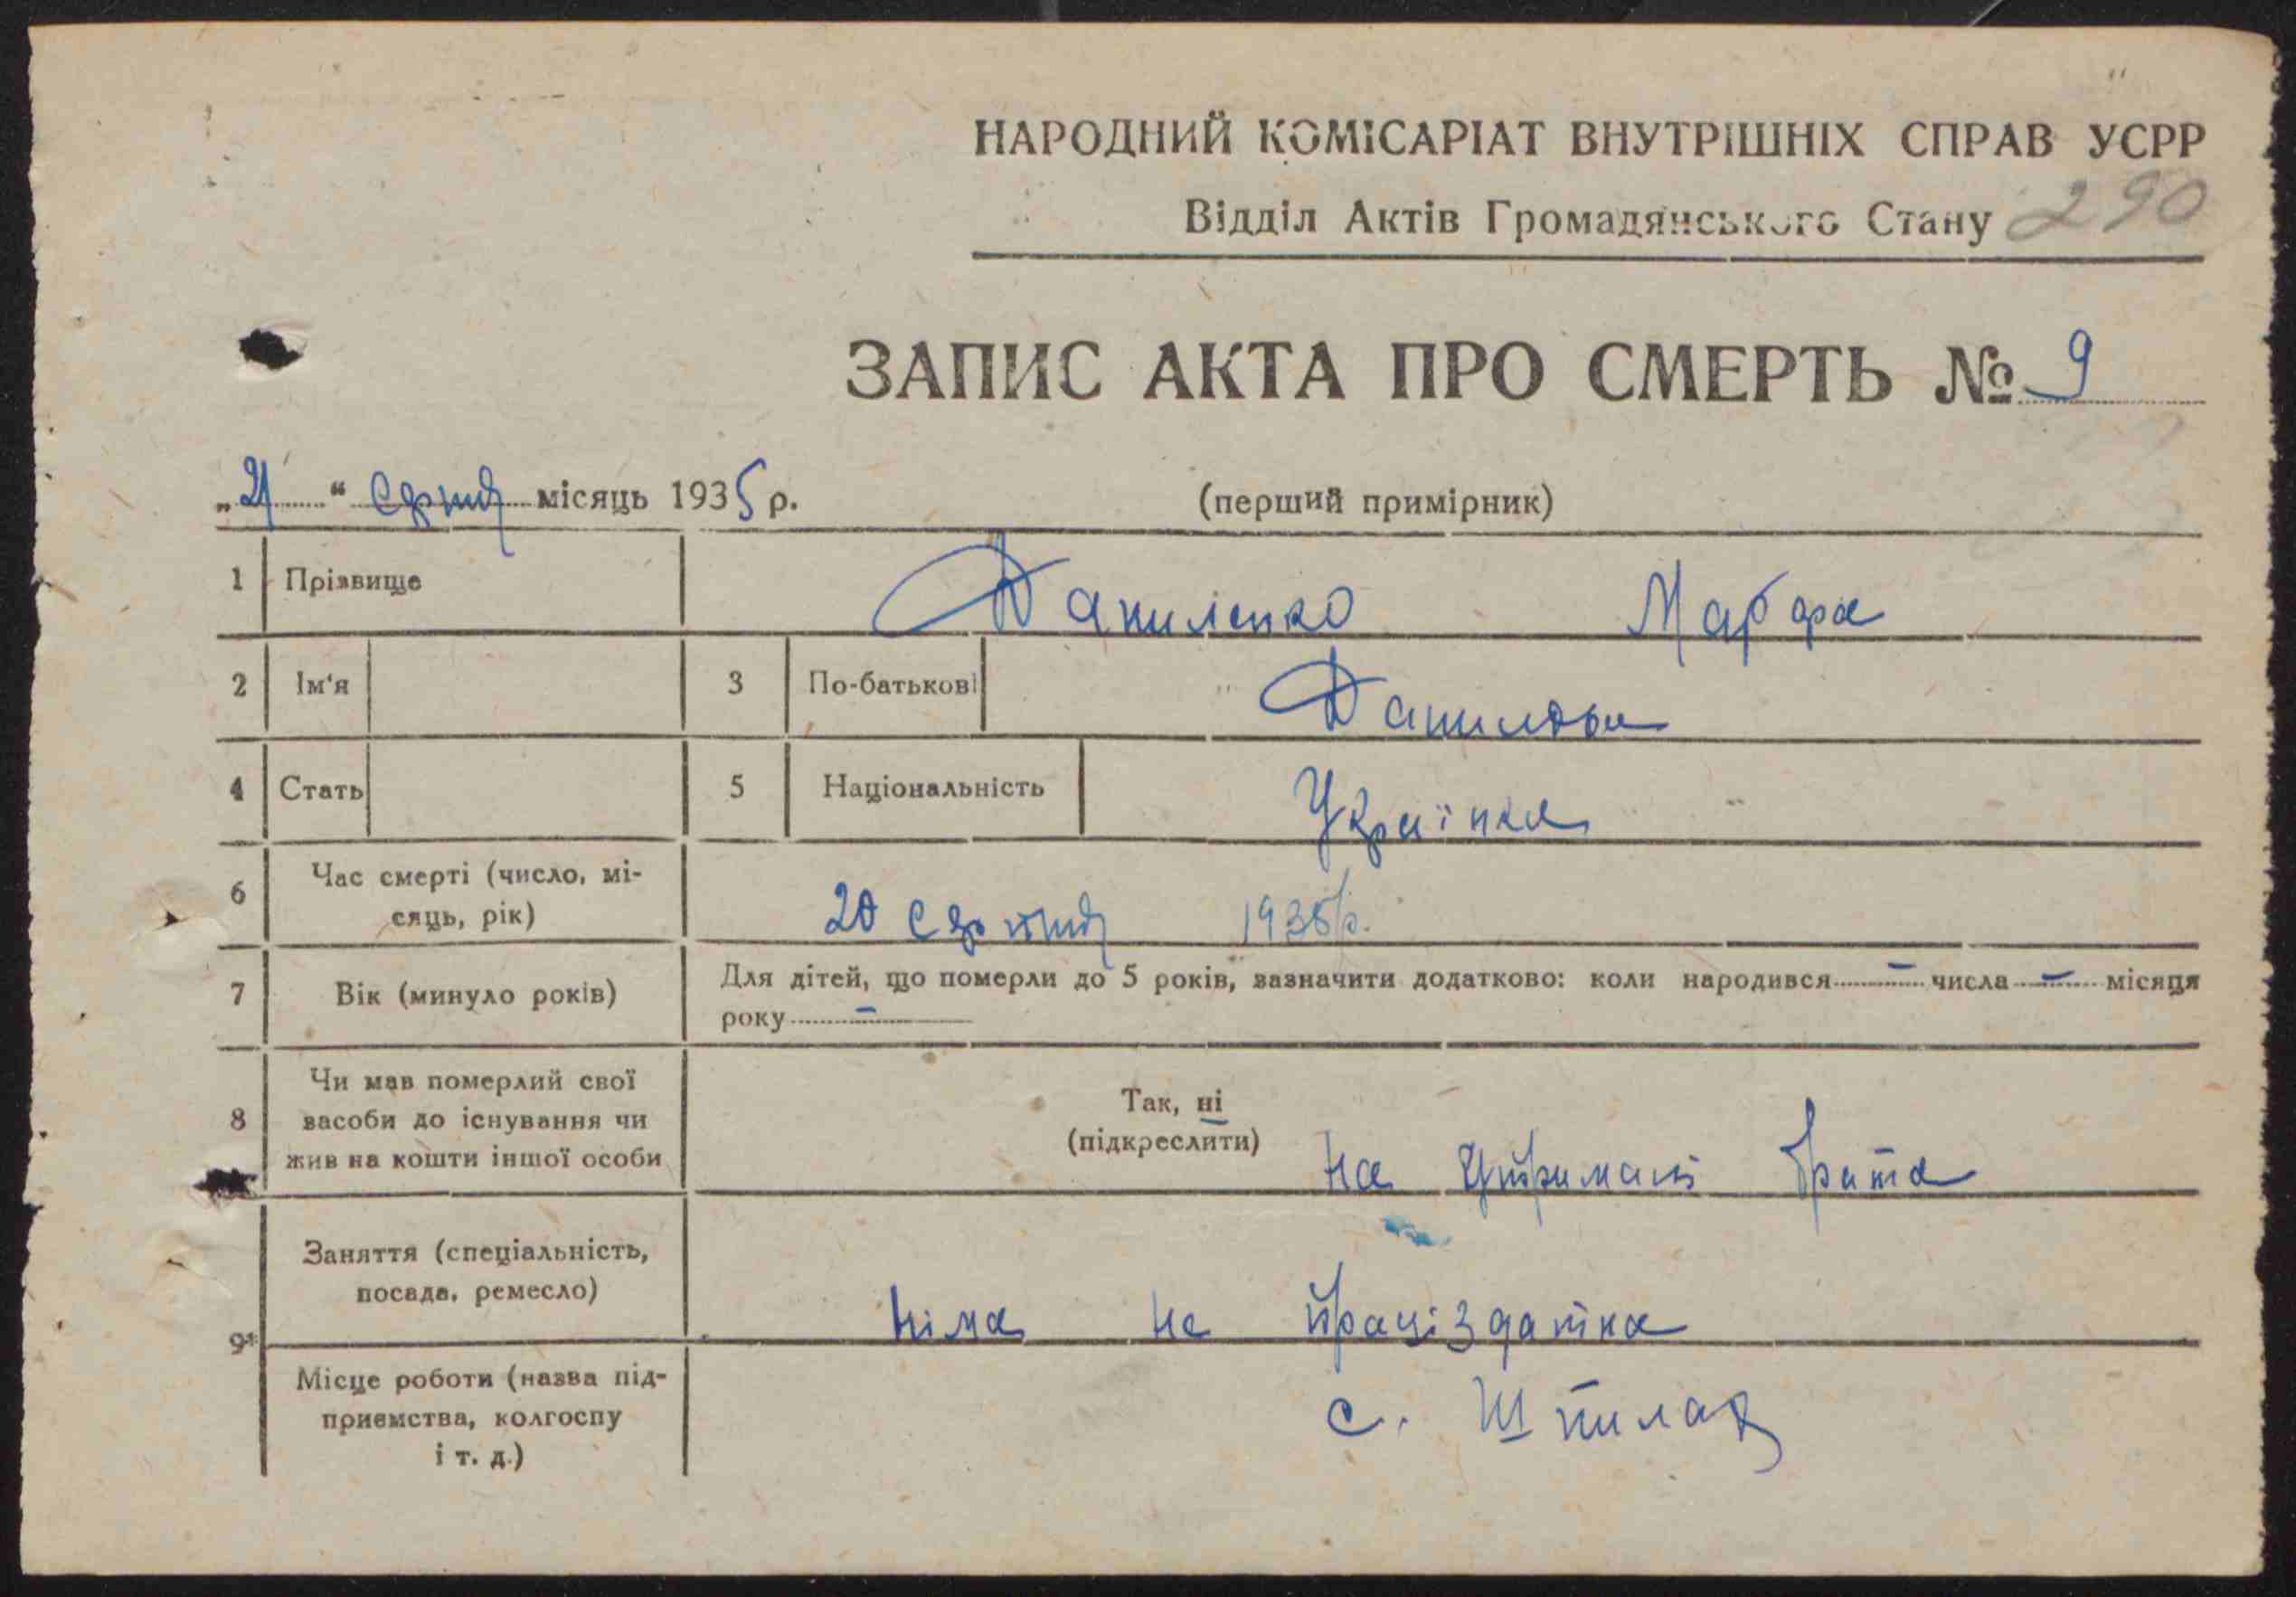 НАРОДНИЙ КОМІСАРІАТ ВНУТРІШНІХ СПРАВ УСРР
Відділ Актів Громадянського Стану 290
ЗАПИС АКТА ПРО СМЕРТЬ № 9
„21“ Серпня місяць 1935 р. (перший примірник)
1 Прізвище Даниленко Марфа
2 Ім'я 3 По-батькові Данилова
4 Стать 5 Національність Українка
6 Час смерті (число, мі-
сяць, рік) 20 Серпня 1935 р.
7 Вік (минуло років) Для дітей, що померли до 5 років, зазначити додатково: коли народився – числа – місяця
року –
8 Чи мав померлий свої
засоби до існування чи
жив на кошти іншої особи
Так, ні
(підкреслити) На утримані брата
9* Заняття (спеціальність,
посада, ремесло) Німа не працездатна
Місце роботи (назва під-
приємства, колгоспу
і т. д.) с.